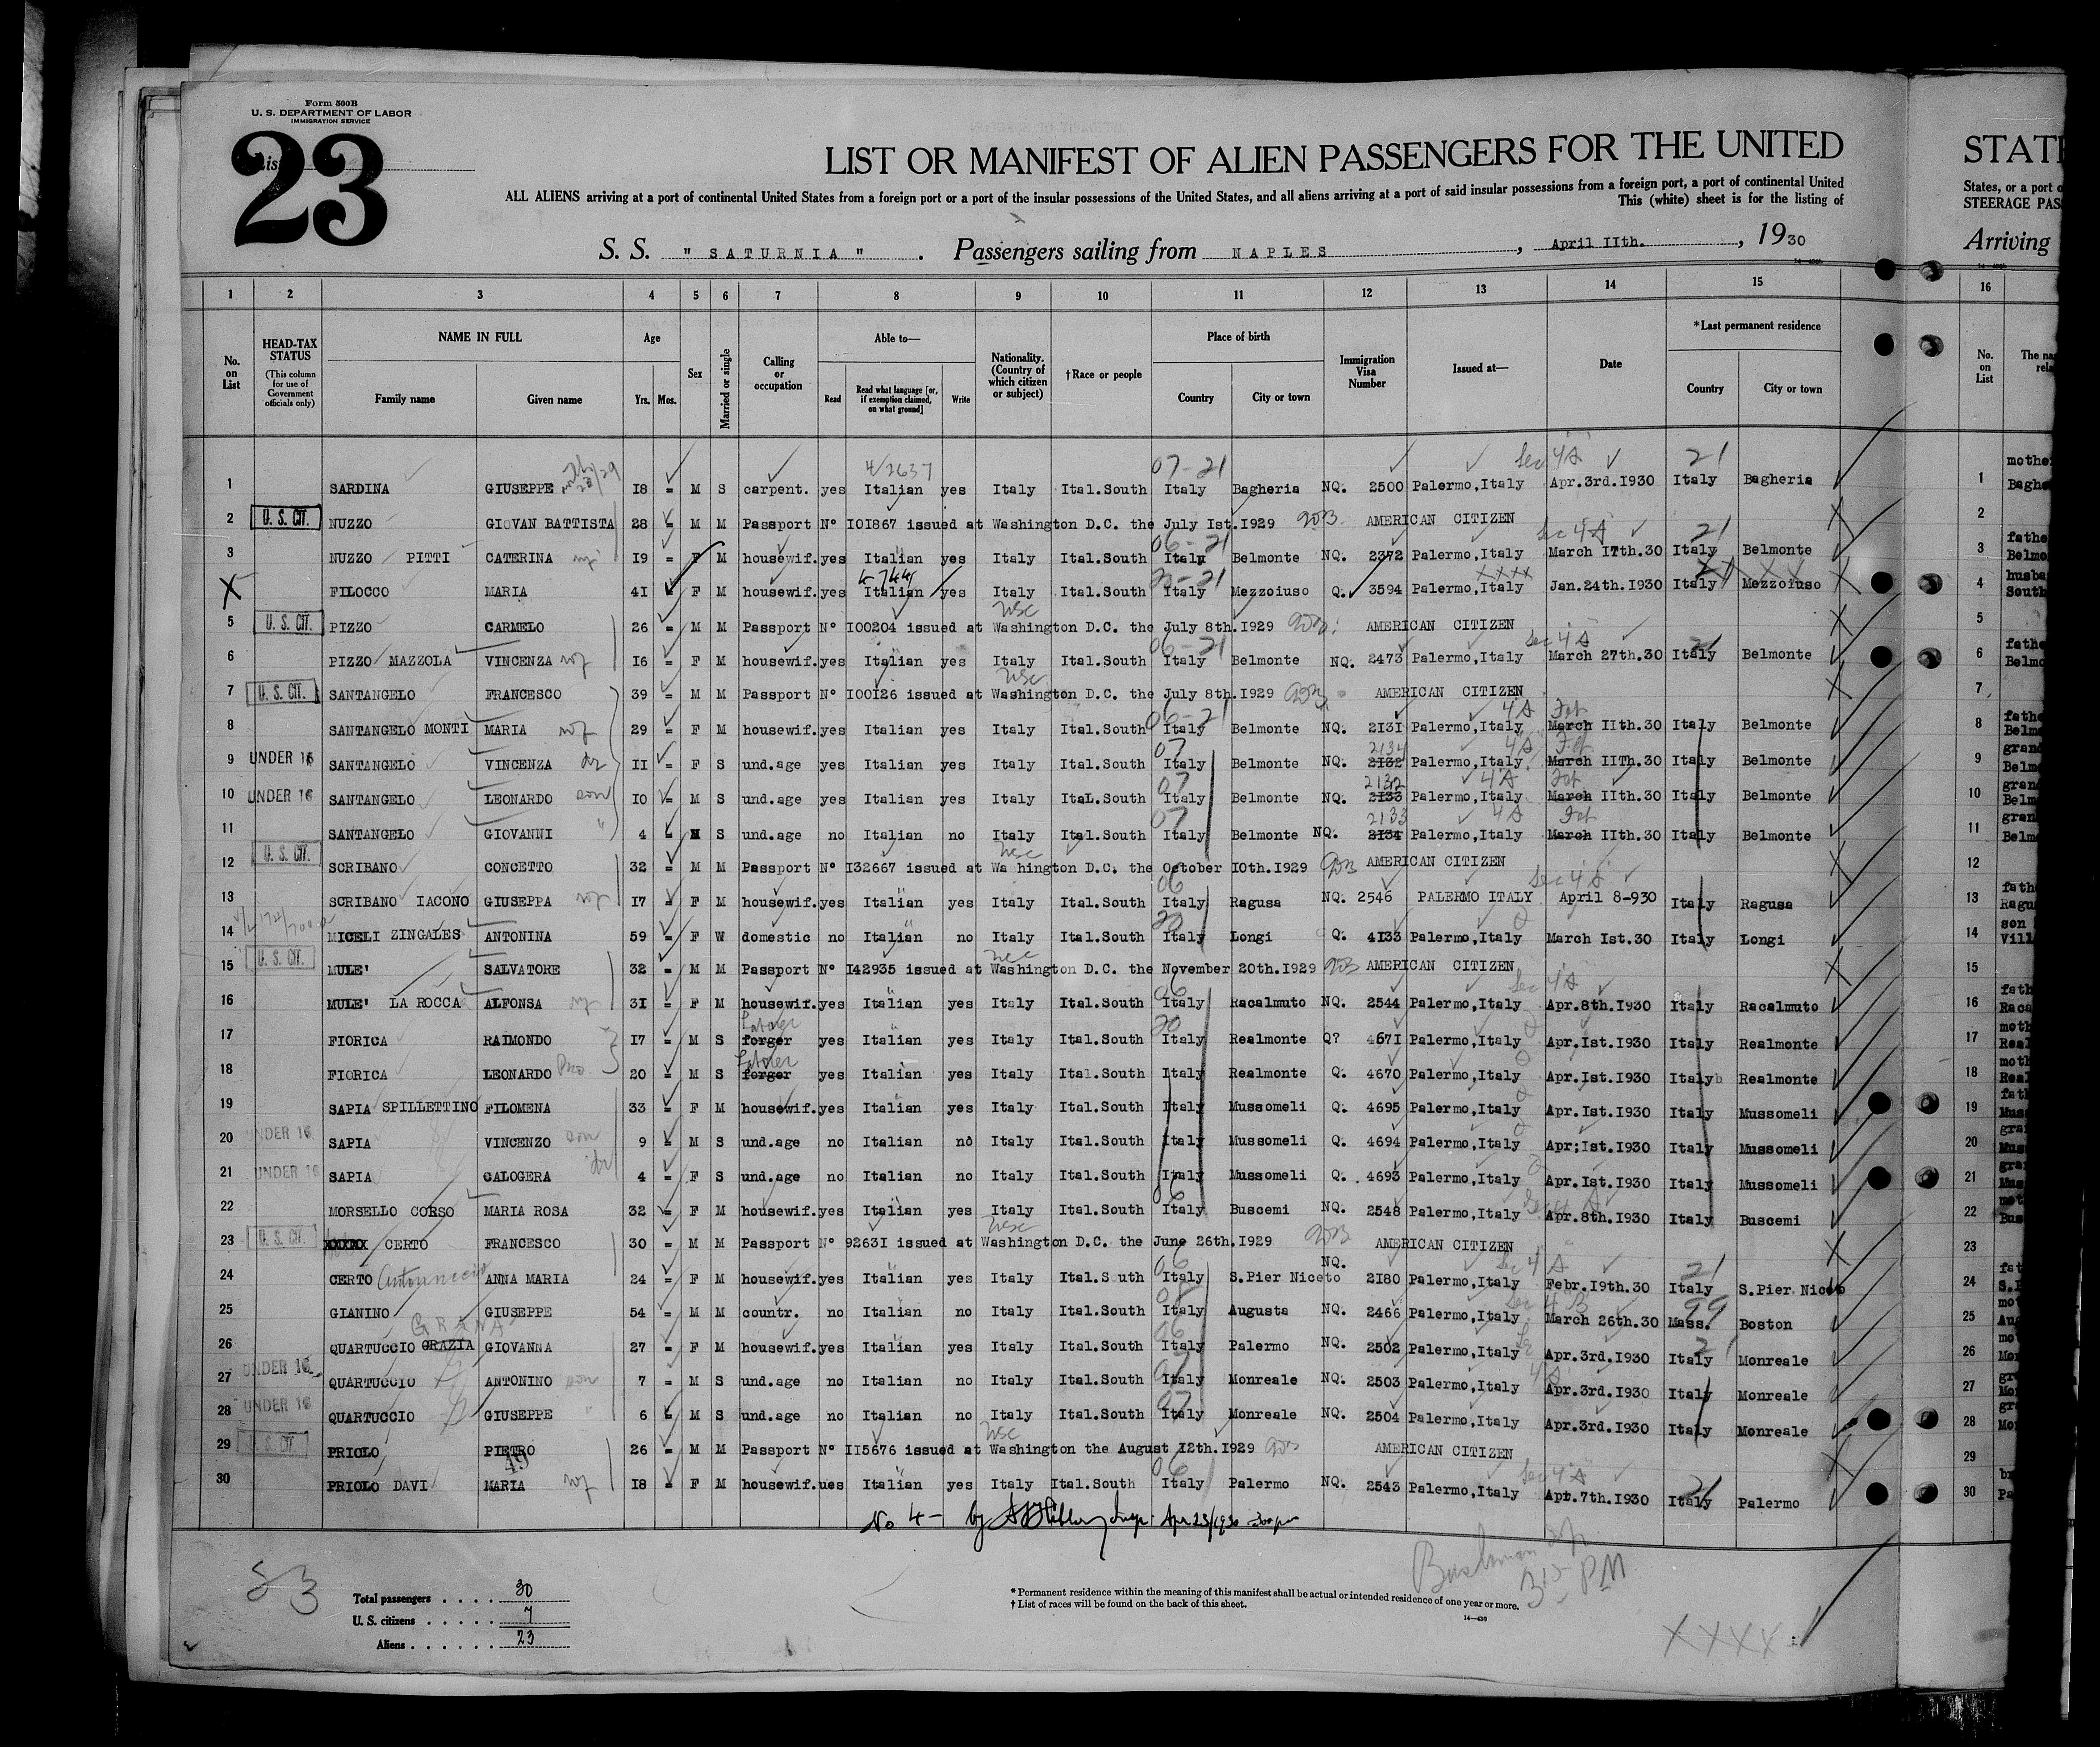 Form 500B
U. S. DEPARTMENT OF LABOR
IMMIGRATION SERVICE
List
23
LIST OR MANIFEST OF ALIEN PASSENGERS FOR THE UNITED
STAT
ALL ALIENS arriving at a port of continental United States from a foreign port or a port of the insular possessions of the United States, and all aliens arriving at a port of said insular possessions from a foreign port, a port of continental United
States, or a port o
This (white) sheet is for the listing of
STEERAGE PAS
S. S. " SATURNIA " . Passengers sailing from NAPLES , April IIth. , 1930
Arriving
1 2 3 4 5 6 7 8 9 10 11 12 13 14 15 16
No. on List
HEAD-TAX STATUS (This column for use of Government officials only)
NAME IN FULL
Family name
Given name
Age
Yrs. Mos.
Sex
Married or single
Calling or occupation
Able to—
Read
Read what language [or, if exemption claimed, on what ground]
Write
Nationality. (Country of which citizen or subject)
†Race or people
Place of birth
Country
City or town
Immigration Visa Number
Issued at—
Date
*Last permanent residence
Country
City or town
No. on List
The na
rela
07-21 Sec 4A 21
1 SARDINA GIUSEPPE I8 = M S carpent. yes Italian yes Italy Ital.South Italy Bagheria NQ. 2500 Palermo,Italy Apr.3rd.I930 Italy Bagheria 1 mothe Baghe
2 U. S. CIT. NUZZO GIOVAN BATTISTA 28 = M M Passport Nº IOI867 issued at Washington D.C. the July Ist.I929 AMERICAN CITIZEN 2
06-21 Sec 4A 21
3 NUZZO PITTI CATERINA I9 = F M housewif.yes Italian yes Italy Ital.South Italy Belmonte NQ. 2372 Palermo,Italy March I7th.30 Italy Belmonte 3 fathe Belmo
X 4 FILOCCO MARIA 4I F M housewif.yes Italian yes Italy Ital.South Italy Mezzoiuso Q. 3594 Palermo,Italy Jan.24th.I930 Italy Mezzoiuso 4 husba South
5 U. S. CIT. PIZZO CARMELO 26 = M M Passport Nº I00204 issued at Washington D.C. the July 8th.I929 AMERICAN CITIZEN 5
06-21 Sec 4A 21
6 PIZZO MAZZOLA VINCENZA I6 = F M housewif.yes Italian yes Italy Ital.South Italy Belmonte NQ. 2473 Palermo,Italy March 27th.30 Italy Belmonte 6 fathe Belmo
7 U. S. CIT. SANTANGELO FRANCESCO 39 = M M Passport Nº I00I26 issued at Washington D.C. the July 8th.I929 AMERICAN CITIZEN 7
06-21 4A
8 SANTANGELO MONTI MARIA 29 = F M housewif.yes Italian yes Italy Ital.South Italy Belmonte NQ. 2I3I Palermo,Italy March IIth.30 Italy Belmonte 8 fathe Belm
07 2134 4A
9 UNDER 16 SANTANGELO VINCENZA II = F S und.age yes Italian yes Italy Ital.South Italy Belmonte NQ. 2I32 Palermo,Italy March IITh.30 Italy Belmonte 9 grand Belm
07 2132 4A
10 UNDER 16 SANTANGELO LEONARDO son IO = M S und.age yes Italian yes Italy ItaL.South Italy Belmonte NQ. 2I33 Palermo,Italy March IIth.30 Italy Belmonte 10 grand Belm
07 2133 4A
11 SANTANGELO GIOVANNI " 4 = M S und.age no Italian no Italy Ital.South Italy Belmonte NQ. 2I34 Palermo,Italy March IIth.30 Italy Belmonte 11 gran Belm
12 U. S. CIT. SCRIBANO CONCETTO 32 = M M Passport Nº I32667 issued at Wa hington D.C. the October IOth.I929 AMERICAN CITIZEN 12
06 Sec 4A
13 SCRIBANO IACONO GIUSEPPA I7 = F M housewif.yes Italian yes Italy Ital.South Italy Ragusa NQ. 2546 PALERMO ITALY April 8-930 Italy Ragusa 13 fath Ragu
14 MICELI ZINGALES ANTONINA 59 = F W domestic no Italian no Italy Ital.South Italy Longi Q. 4I33 Palermo,Italy March Ist.30 Italy Longi 14 son Vill
15 U. S. CIT. MULE' SALVATORE 32 = M M Passport Nº I42935 issued at Washington D.C. the November 20th.I929 AMERICAN CITIZEN 15
06 Sec 4A
16 MULE' LA ROCCA ALFONSA 3I = F M housewif.yes Italian yes Italy Ital.South Italy Racalmuto NQ. 2544 Palermo,Italy Apr.8th.I930 Italy Racalmuto 16 fath Raca
Laborer
17 FIORICA RAIMONDO I7 = M S forger yes Italian yes Italy Ital.South Italy Realmonte Q? 467I Palermo,Italy Apr.Ist.I930 Italy Realmonte 17 moth Real
Laborer
18 FIORICA LEONARDO 20 = M S forger yes Italian yes Italy Ital.South Italy Realmonte Q. 4670 Palermo,Italy Apr.Ist.I930 Italy Realmonte 18 moth Real
19 SAPIA SPILLETTINO FILOMENA 33 = F M housewif.yes Italian yes Italy Ital.South Italy Mussomeli Q. 4695 Palermo,Italy Apr.Ist.I930 Italy Mussomeli 19 fath Muss
20 UNDER 16 SAPIA VINCENZO son 9 = M S und.age no Italian no Italy Ital.South Italy Mussomeli Q. 4694 Palermo,Italy Apr;Ist.I930 Italy Mussomeli 20 gra Mus
21 UNDER 16 SAPIA CALOGERA 4 = F S und.age no Italian no Italy Ital.South Italy Mussomeli Q. 4693 Palermo,Italy Apr.Ist.I930 Italy Mussomeli 21 gra Mus
22 MORSELLO CORSO MARIA ROSA 32 = F M housewif.yes Italian yes Italy Ital.South Italy Buscemi NQ. 2548 Palermo,Italy Apr.8th.I930 Italy Buscemi 22 Bus
23 U. S. CIT. CERTO FRANCESCO 30 = M M Passport Nº 9263I issued at Washington D.C. the June 26th.I929 AMERICAN CITIZEN 23
06 Sec 4A 21
24 CERTO Antonuccio ANNA MARIA 24 = F M housewif.yes Italian yes Italy Ital.S uth Italy S.Pier Niceto NQ. 2I80 Palermo,Italy Febr.I9th.30 Italy S.Pier Niceto 24 fat S.P
99
25 GIANINO GIUSEPPE 54 = M M countr. no Italian no Italy Ital.South Italy Augusta NQ. 2466 Palermo,Italy March 26th.30 Mass. Boston 25 mot Aug
GRANA
26 QUARTUCCIO GRAZIA GIOVANNA 27 = F M housewif.yes Italian yes Italy Ital.South Italy Palermo NQ. 2502 Palermo,Italy Apr.3rd.I930 Italy Monreale 26 mo Mon
27 UNDER 16 QUARTUCCIO ANTONINO son 7 = M S und.age no Italian no Italy Ital.South Italy Monreale NQ. 2503 Palermo,Italy Apr.3rd.I930 Italy Monreale 27 gr Mo
28 UNDER 16 QUARTUCCIO GIUSEPPE " 6 = M S und.age no Italian no Italy Ital.South Italy Monreale NQ. 2504 Palermo,Italy Apr.3rd.I930 Italy Monreale 28 gr Mo
29 U. S. CIT. PRIOLO PIETRO 26 = M M Passport Nº II5676 issued at Washington the August I2th.I929 AMERICAN CITIZEN 29
49 06 Sec 4A 21
30 PRIOLO DAVI MARIA I8 = F M housewif.ues Italian yes Italy Ital.South Italy Palermo NQ. 2543 Palermo,Italy Apr.7th.I930 Italy Palermo 30 br Pa
No 4 - by Insp. Apr 23/1930
Total passengers . . . . 30
U. S. citizens . . . . . 7
Aliens . . . . . . 23
* Permanent residence within the meaning of this manifest shall be actual or intended residence of one year or more.
† List of races will be found on the back of this sheet.
14-430
PM
XXXX